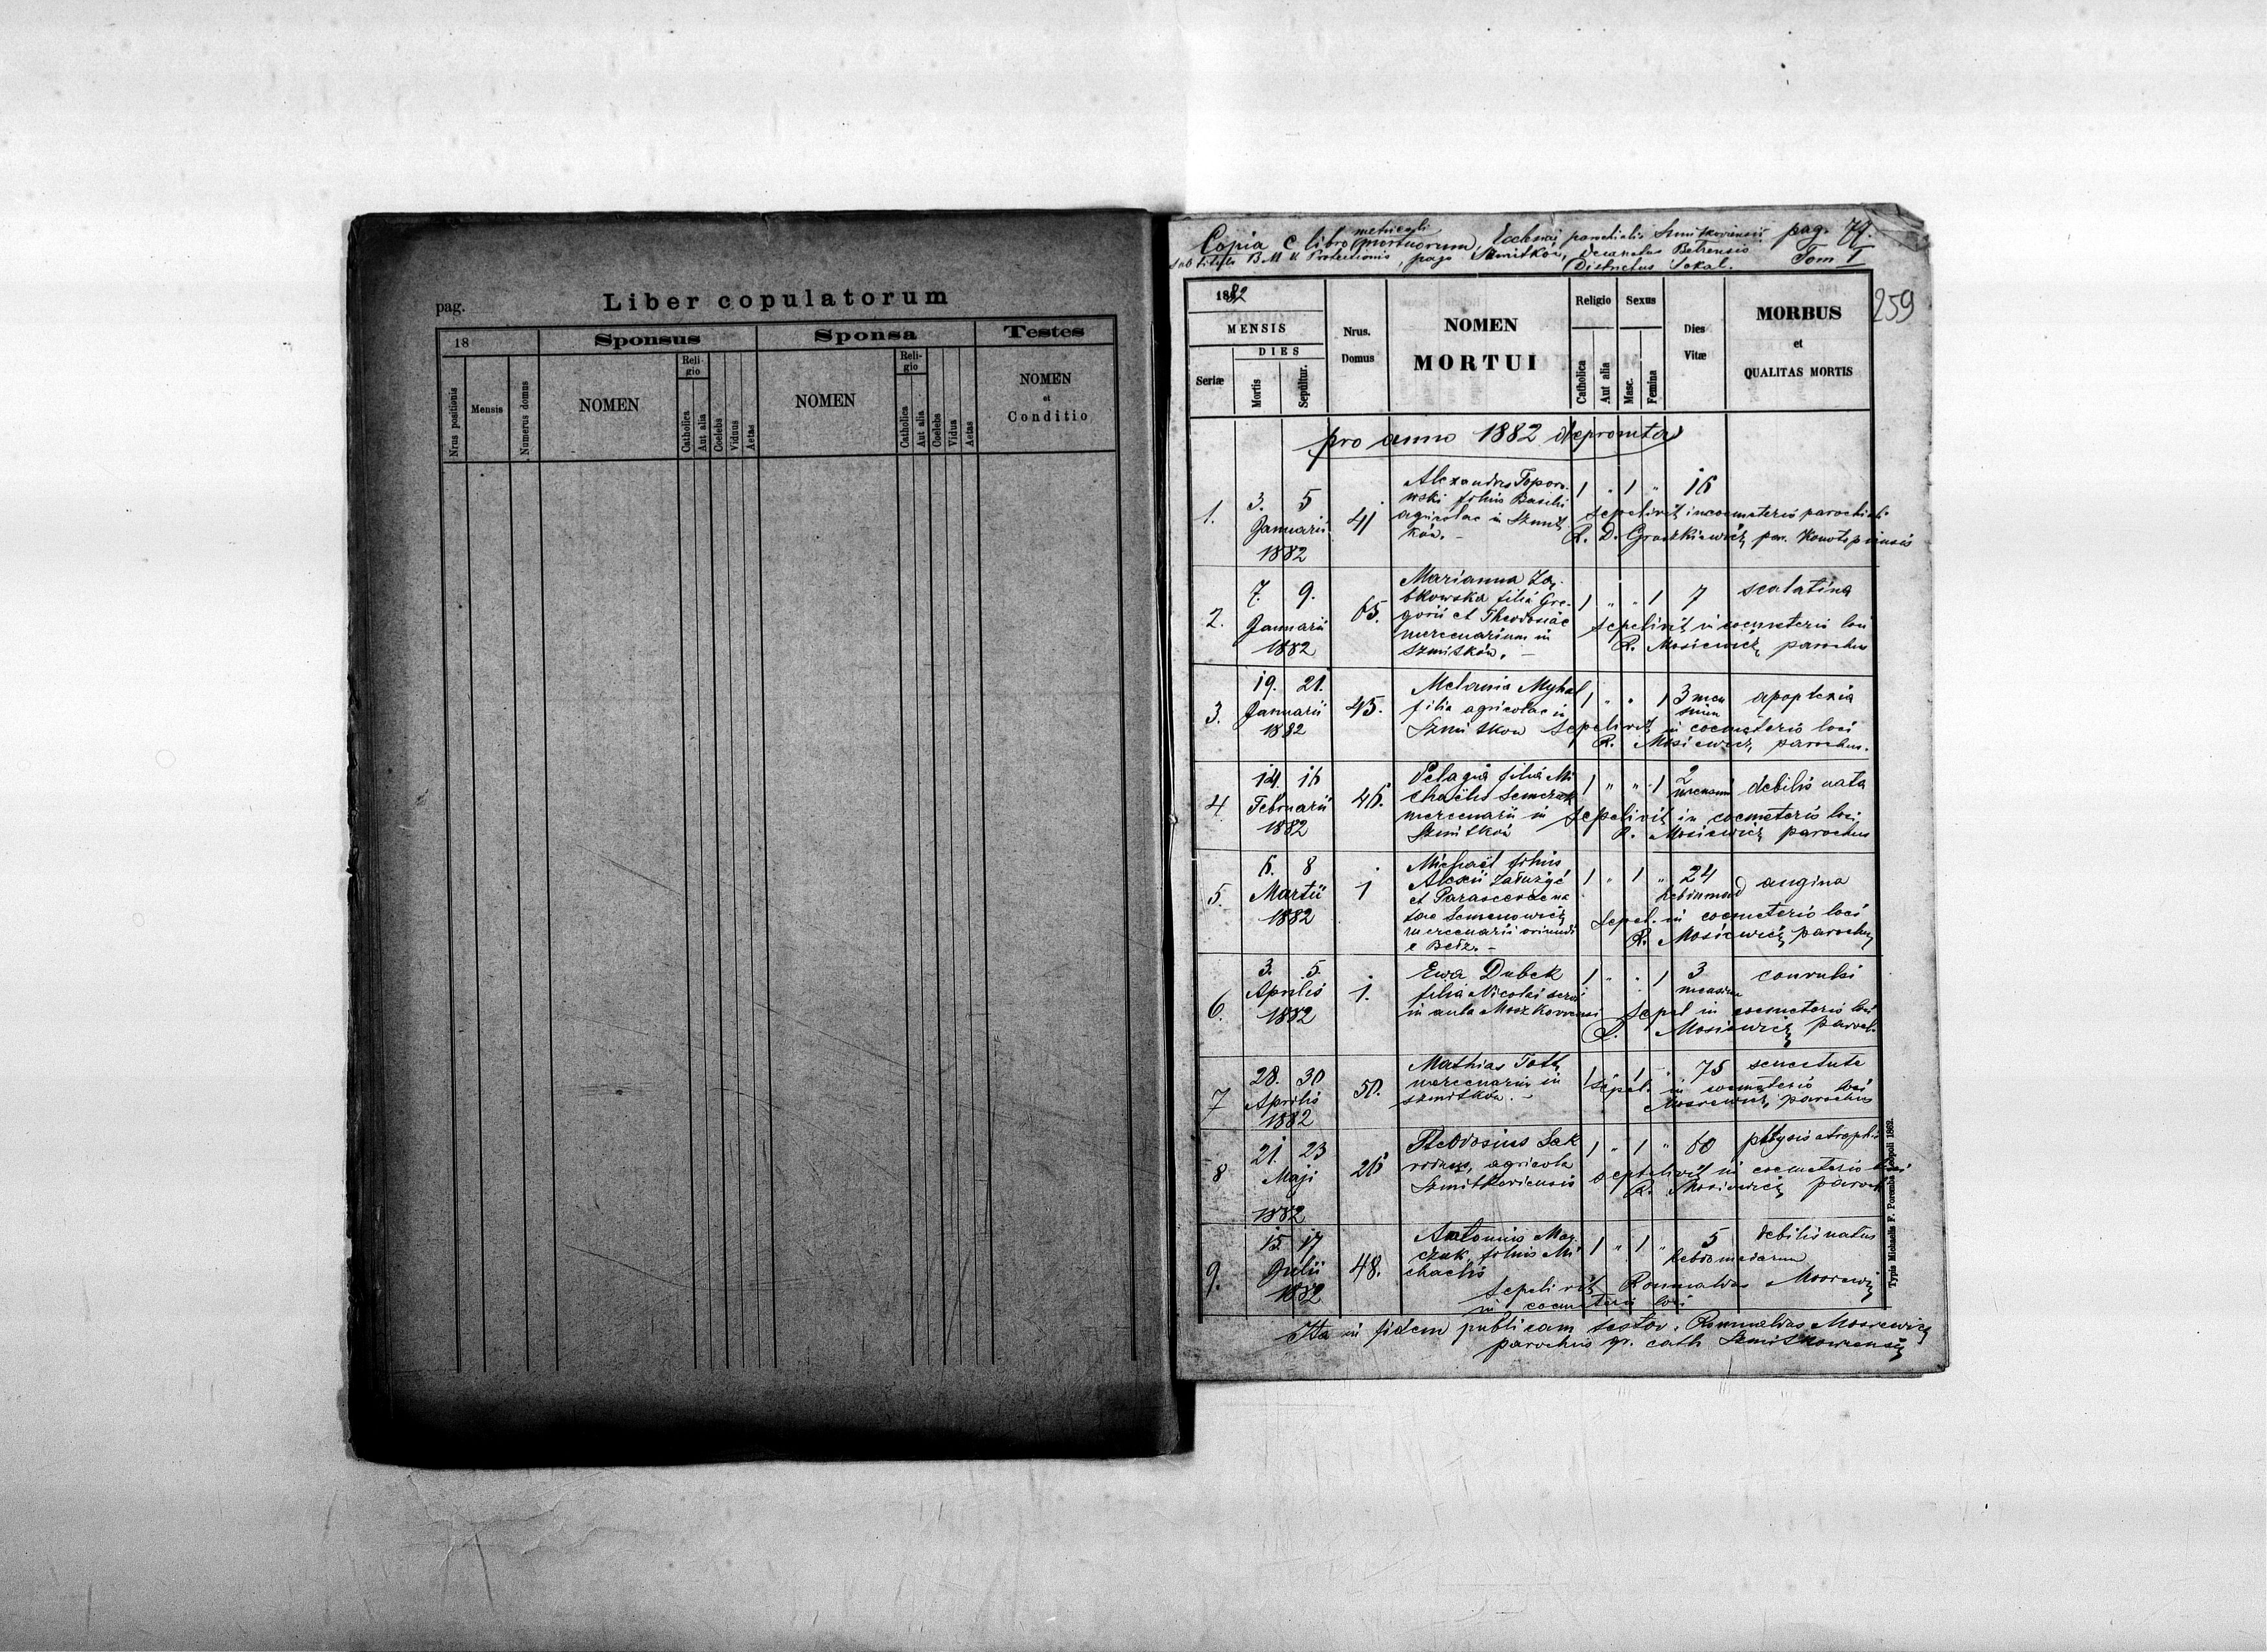 pag.
Liber copulatorum
18
Sponsus
Sponsa
Testes
Nrus positionis
Mensis
Numerus domus
NOMEN
Religio
Catholica
Aut alia
Coelebs
Viduus
Aetas
NOMEN
Religio
Catholica
Aut alia
Coelebs
Vidua
Aetas
NOMEN
et
Conditio
Copia e libro metricali mortuorum, Ecclesiae parochialis Szmitkoviensis pag. 79.
sub titulo B M V Protectionis, pago Szmitków, decanatus Belzensis Tom I
Districtus Sokal.
259
1882
MENSIS
DIES
Seriæ
Mortis
Sepultur.
Nrus.
Domus
NOMEN
MORTUI
Religio
Catholica
Aut alia
Sexus
Masc.
Femina
Dies
Vitæ
MORBUS
et
QUALITAS MORTIS
pro anno 1882 depromta
1. 3. 5 Januarii 1882 41
Alexander Toporo-
wski filius Basilii
agricolae in Szmit
ków. –
1 " 1 " 16
sepelivit in coemeterio parochiali
R. D. Groszkiewicz par. Konotopiensis
2. 7. 9. Januarii 1882 65.
Marianna Za
bkowska filia Gre-
gorii et Theodosiae
mercenarium in
Szmitków. –
1 " " 1 7 scalatina
sepelivit in coemeterio loci
R. Mosiewicz parochus
3. 19. 21. Januarii 1882 45.
Melania Myhal
filia agricolae in
Szmitkow
1 " " 1 3 men
sium
apoplexia
sepelivit in coemeterio loci
R. Mosiewicz parochus.
4 14 16 Februarii 1882 46.
Pelagia filia Mi
chaelis Semczuk
mercenarii in
Szmitków
1 " " 1 2
mensium
debilis nata
sepelivit in coemeterio loci
R. Mosiewicz parochus
5. 6. 8 Martii 1882 1
Michael filius
Alexii Załużyć
et Parascevae na
tae Semenowicz
mercenarii oriundi
e Bełz. –
1 " 1 " 24
hebdomad
angina
Sepel. in coemeterio loci
R. Mosiewicz parochus
6. 3. 5. Aprilis 1882 1.
Ewa Dubek
filia Nicolai servi
in aula Moszkoviensi
1 " " 1 3
mensium
convulsi
Sepel in coemeterio loci
R. Mosiewicz paroch.
7 28. 30 Aprilis 1882 50.
Mathias Toth
mercenarius in
Szmitków. –
1 1 75 senectute
sepel. in coemeterio loci
Mosiewicz parochus
8 21. 23 Maji 1882 26
Theodosius
agricola
Szmitkoviensis
1 " 1 " 60
sepelivit in coemeterio loci
R. Mosiewicz paroch
9. 15. 17 Julii 1882 48.
Antonius
filius Mi
chaelis
1 " 1 " 5
hebdomadarum
debilis natus
sepelivit Romualdus Mosiewicz
in coemeterio loci
Ita in fidem publicam testor. Romualdus Mosiewicz
parochus gr. cath Szmitkowiensis
Typis Michaelis F. Poremba Leopoli 1862.